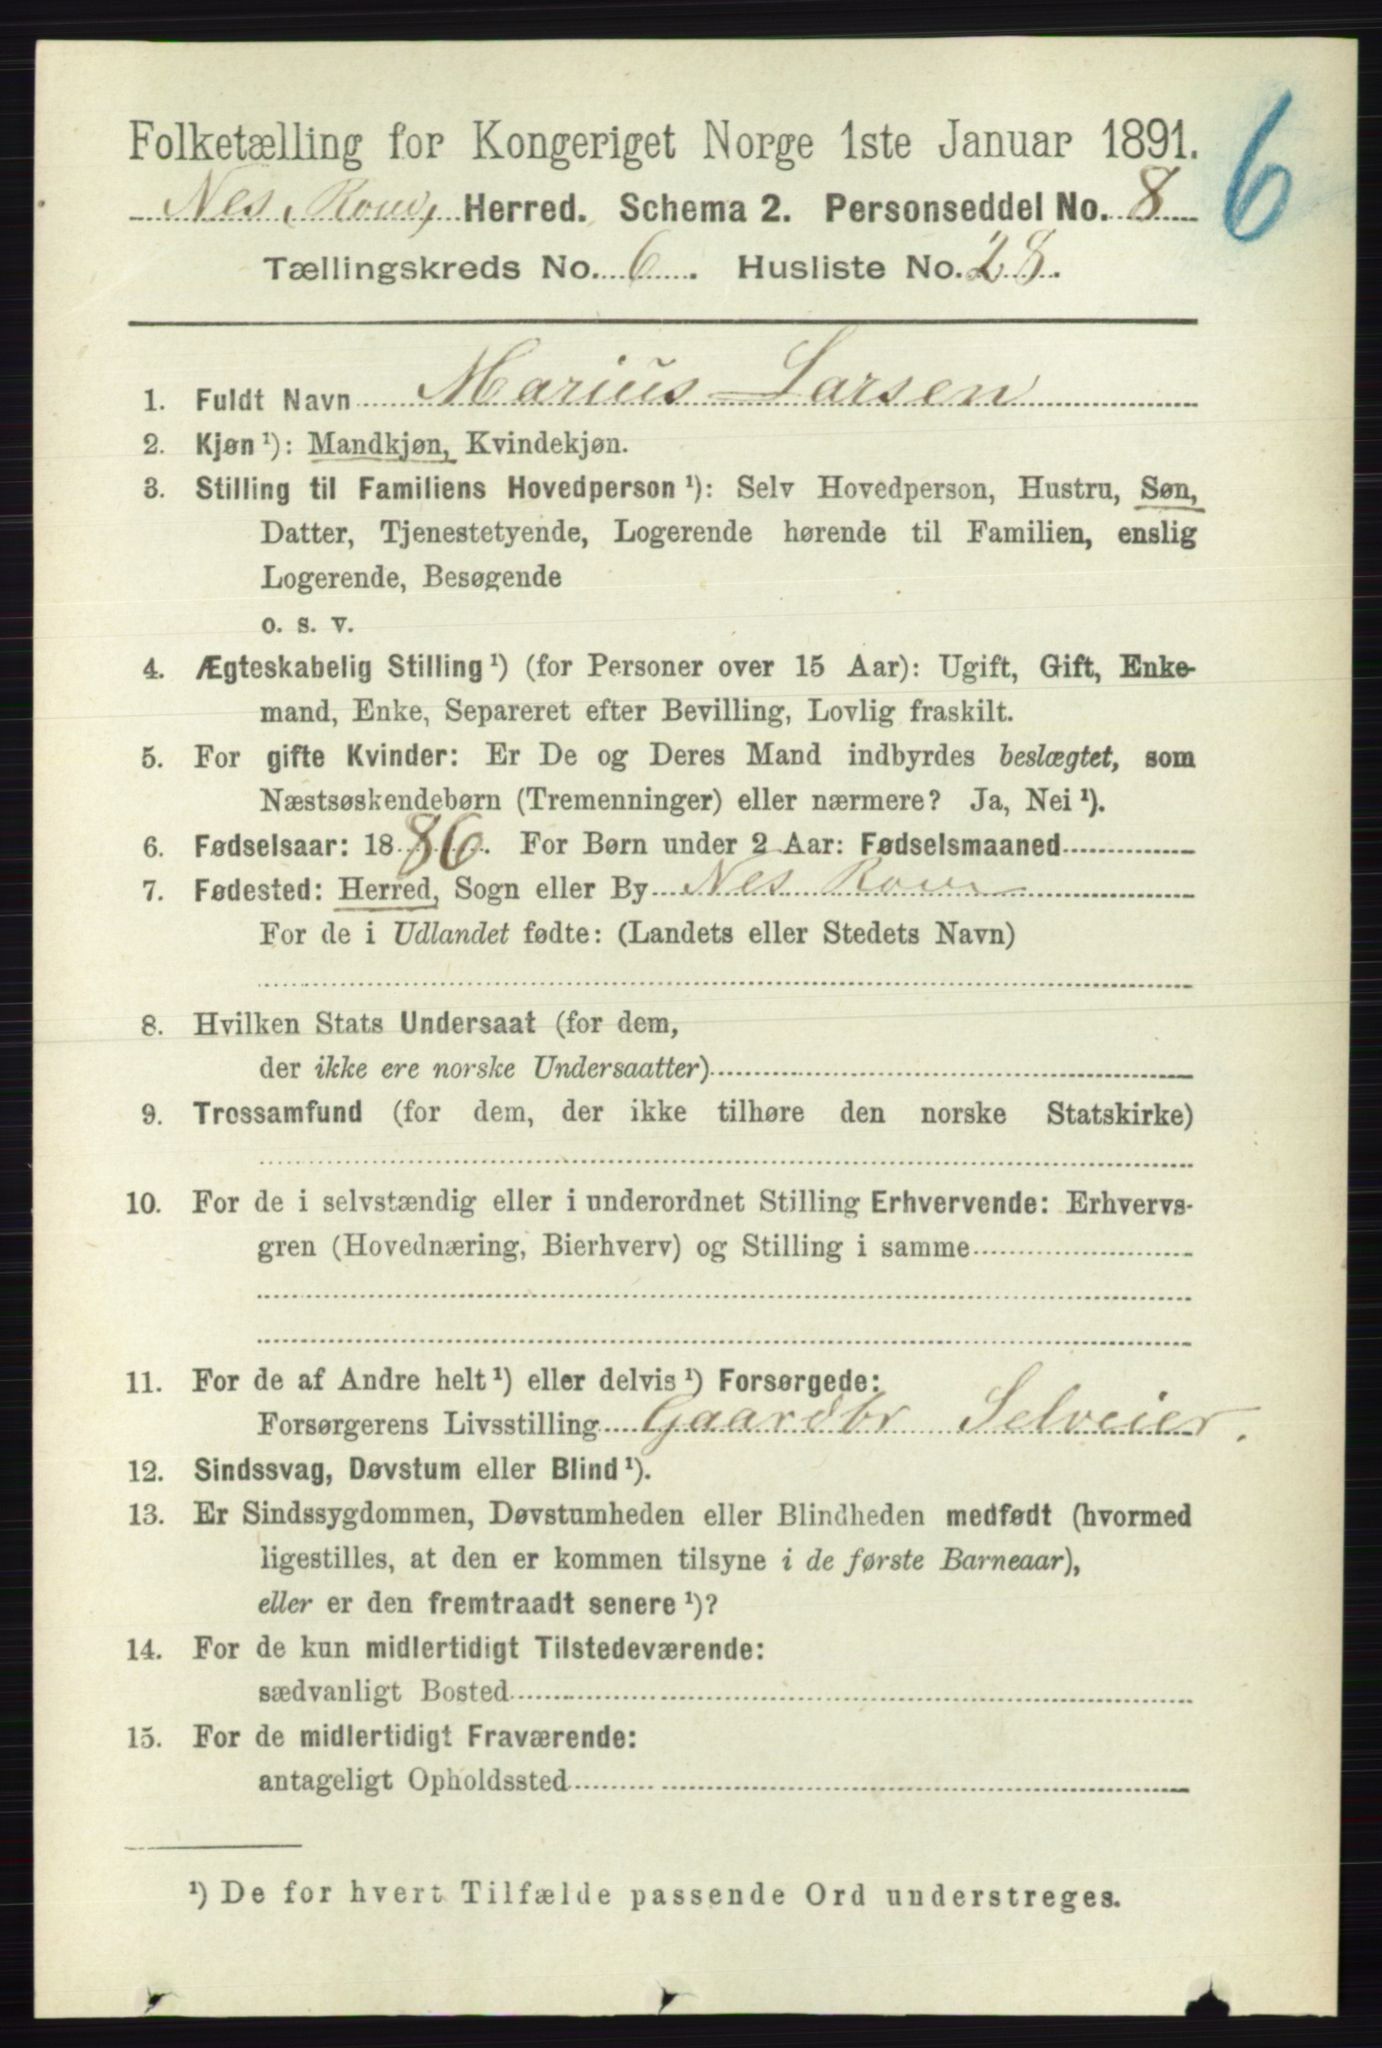 6
Folketælling for Kongeriget Norge 1ste Januar 1891.
Nes, Rom, Herred. Schema 2. Personseddel No. 8
Tællingskreds No. 6. Husliste No. 28.
1. Fuldt Navn Marius Larsen
2. Kjøn ¹): Mandkjøn, Kvindekjøn.
3. Stilling til Familiens Hovedperson ¹): Selv Hovedperson, Hustru, Søn,
Datter, Tjenestetyende, Logerende hørende til Familien, enslig
Logerende, Besøgende
o. s. v.
4. Ægteskabelig Stilling ¹) (for Personer over 15 Aar): Ugift, Gift, Enke-
mand, Enke, Separeret efter Bevilling, Lovlig fraskilt.
5. For gifte Kvinder: Er De og Deres Mand indbyrdes beslægtet, som
Næstsøskendebørn (Tremenninger) eller nærmere? Ja, Nei ¹).
6. Fødselsaar: 1886. For Børn under 2 Aar: Fødselsmaaned
7. Fødested: Herred, Sogn eller By Nes Rom
For de i Udlandet fødte: (Landets eller Stedets Navn)
8. Hvilken Stats Undersaat (for dem,
der ikke ere norske Undersaatter)
9. Trossamfund (for dem, der ikke tilhøre den norske Statskirke)
10. For de i selvstændig eller i underordnet Stilling Erhvervende: Erhvervs-
gren (Hovednæring, Bierhverv) og Stilling i samme
11. For de af Andre helt ¹) eller delvis ¹) Forsørgede:
Forsørgerens Livsstilling Gaardbr Selveier.
12. Sindssvag, Døvstum eller Blind ¹).
13. Er Sindssygdommen, Døvstumheden eller Blindheden medfødt (hvormed
ligestilles, at den er kommen tilsyne i de første Barneaar),
eller er den fremtraadt senere ¹)?
14. For de kun midlertidigt Tilstedeværende:
sædvanligt Bosted
15. For de midlertidigt Fraværende:
antageligt Opholdssted
¹) De for hvert Tilfælde passende Ord understreges.